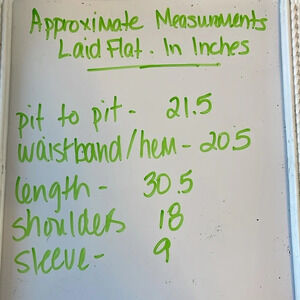 Approximate Measurments
Laid Flat. In Inches
pit to pit - 21.5
waistband/hem - 20.5
length - 30.5
shoulders 18
sleeve - 9